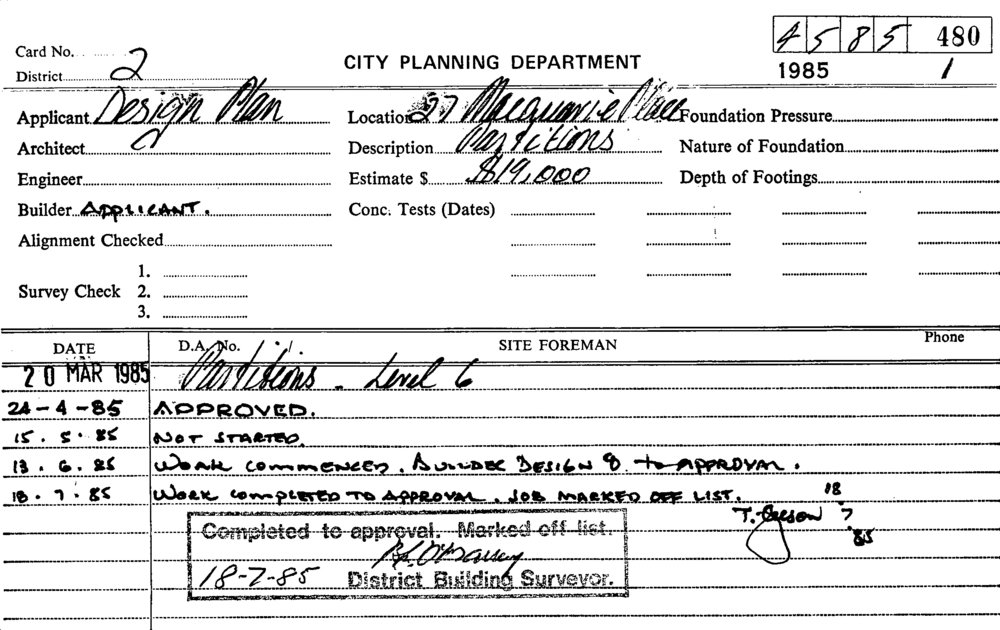 4 5 8 5 480
Card No. 2
CITY PLANNING DEPARTMENT
1985 1
District
Applicant Design Plan Location 27 Macquarie Place Foundation Pressure
Architect Description Partitions Nature of Foundation
Engineer Estimate $ $19,000 Depth of Footings
Builder APPLICANT. Conc. Tests (Dates)
Alignment Checked
1.
Survey Check 2.
3.
DATE D.A. No. SITE FOREMAN Phone
20 MAR 1985 Partitions - Level 6
24-4-85 APPROVED.
15.5.85 NOT STARTED.
13.6.85 WORK COMMENCED. BUILDER DESIGN to APPROVAL.
18.7.85 WORK COMPLETED TO APPROVAL. JOB MARKED OFF LIST.
T. 18 7 85
Completed to approval. Marked off list.
18-7-85 District Building Surveyor.